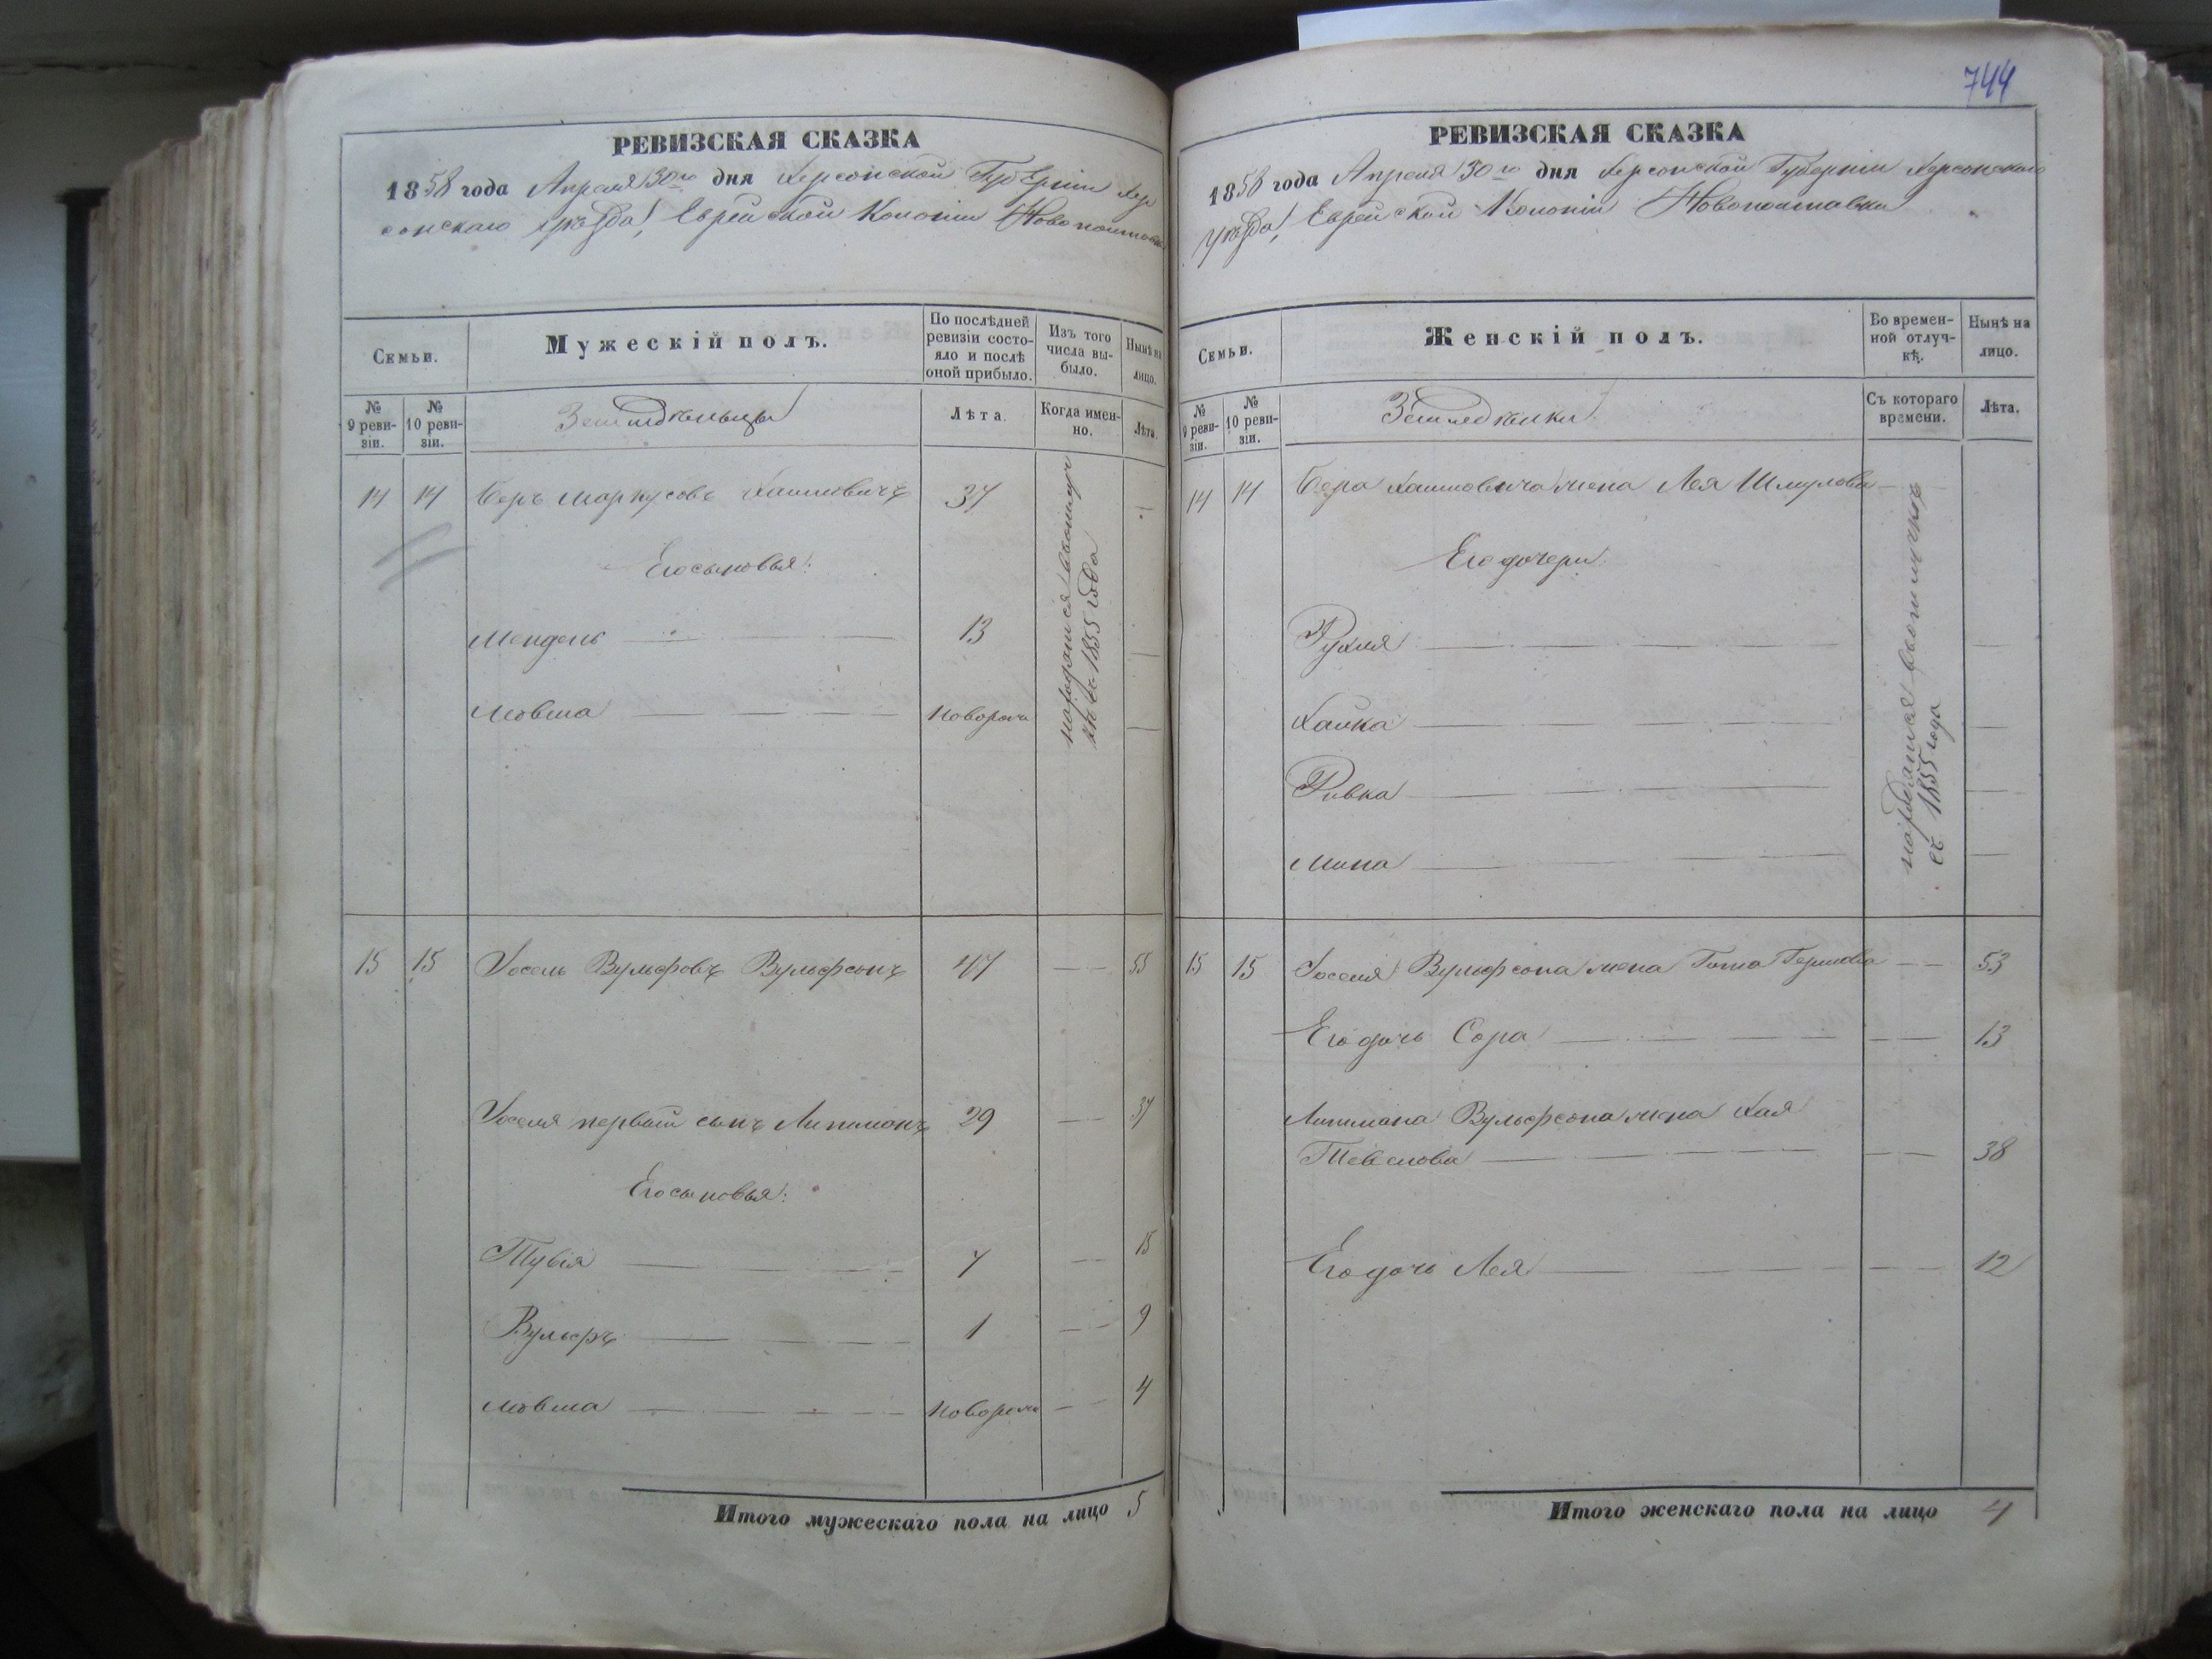 744
РЕВИЗСКАЯ СКАЗКА
1858 года Апреля 30го дня Херсонской Губерніи Хер
сонскаго уѣзда, Еврейской Колоніи Новополтавки
Семьи.
Мужескій полъ.
По послѣдней ревизіи состояло и послѣ оной прибыло.
Изъ того числа выбыло.
Нынѣ на лицо.
№ 9 ревизіи.
№ 10 ревизіи.
Земледѣльцы
Лѣта.
Когда именно.
Лѣта.
14 14 Беръ Маркусовъ 37 —
Его сыновья:
Мендель 13 —
Мовша новорож —
находятся въ отлуч
кѣ съ 1855 года
15 15 Іосель Вульфовъ Вульфсонъ 47 — 55
Іоселя первый сынъ Липманъ 29 — 37
Его сыновья:
Тувія 7 — 15
Вульфъ 1 — 9
Мовша новорож — 4
Итого мужескаго пола на лицо 5
РЕВИЗСКАЯ СКАЗКА
1858 года Апреля 30го дня Херсонской Губерніи Херсонскаго
уѣзда, Еврейской Колоніи Новополтавки
Семьи.
Женскій полъ.
Во временной отлучкѣ.
Нынѣ на лицо.
№ 9 ревизіи.
№ 10 ревизіи.
Земледѣлки
Съ котораго времени.
Лѣта.
14 14 Бера жена Лея Шмулова —
Его дочери:
Рухля —
Хайка —
Ривка —
Мина —
находятся въ отлучкѣ
съ 1855 года
15 15 Іоселя Вульфсона жена Гершова — 53
Его дочь Сора — 13
Липмана Вульфсона жена Хая
— 38
Его дочь Лея — 12
Итого женскаго пола на лицо 4